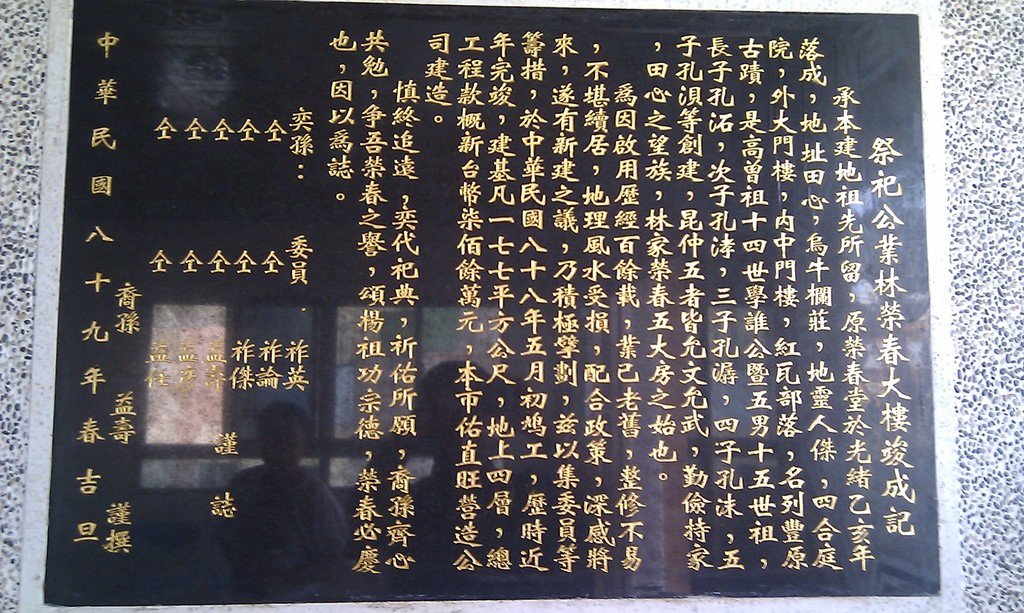 祭祀公業林榮春大樓竣成記
承本建地祖先所留，原榮春堂於光緒乙亥年
落成，地址田心，烏牛欄莊，地靈人傑，四合庭
院，外大門樓，內中門樓，紅瓦部落，名列豐原
古蹟，是高曾祖十四世學誰公暨五男十五世祖，
長子孔沰，次子孔涍，三子孔潺，四子孔沬，五
子孔浿等創建，昆仲五者皆允文允武，勤儉持家
，田心之望族，林家榮春五大房之始也。
為因啟用歷經百餘載，業已老舊，整修不易
，不堪續居，地理風水受損，配合政策，深感將
來，遂有新建之議，乃積極擘劃，茲以集委員等
籌措，於中華民國八十八年五月初鳩工，歷時近
年完竣，建基凡一七七平方公尺，地上四層，總
工程款概新台幣柒佰餘萬元，本市佑直旺營造公
司建造。
慎終追遠，奕代祀典，祈佑所願，裔孫齊心
共勉，爭吾榮春之譽，頌揚祖功宗德，榮春必慶
也，因以為誌。
奕孫：委員．祚英
仝仝祚論
仝仝祚傑
仝仝益壽 謹誌
仝仝益
仝仝益
裔孫 益壽 謹撰
中華民國八十九年春吉旦